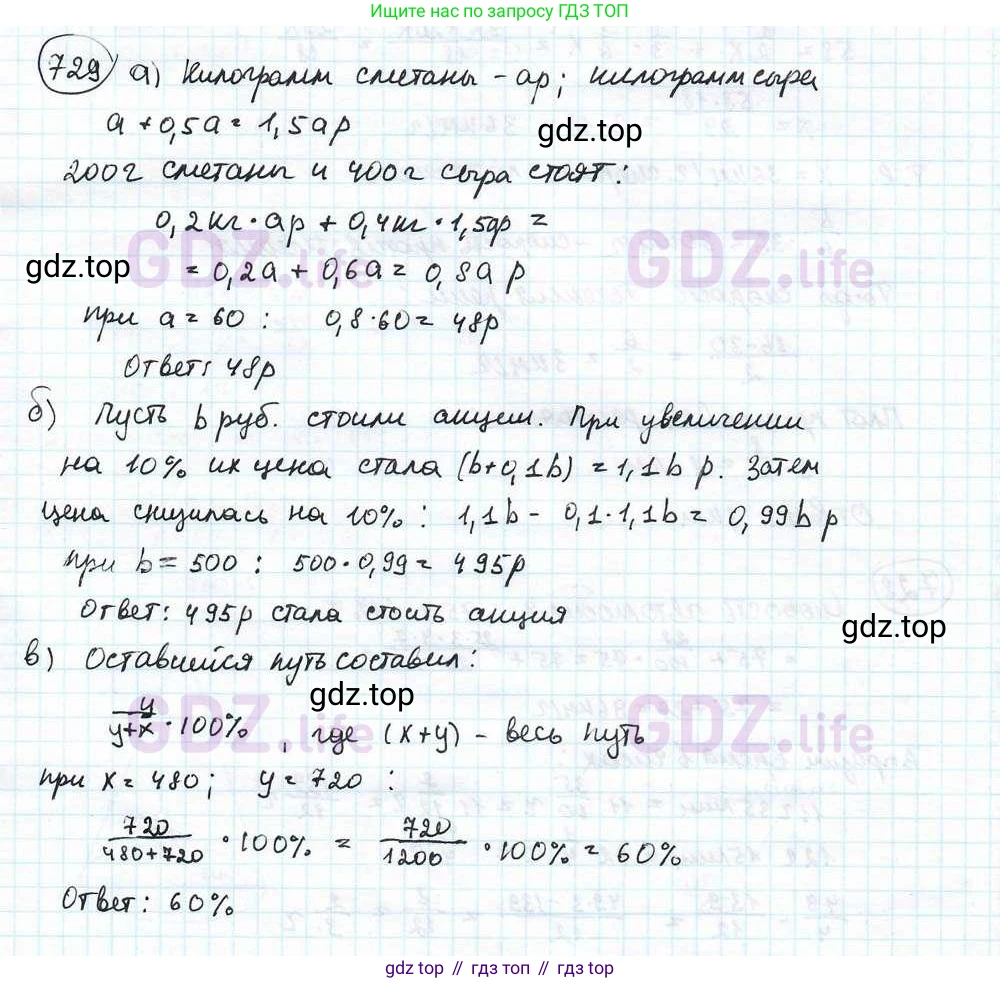 Ищите ответы по запросу ГДЗ ТОП
729 а) Килограмм сметаны - ар; килограмм сыра
а + 0,5а = 1,5ар
gdz.top
200г сметаны и 400г сыра стоят:
0,2кг · ар + 0,4кг · 1,5ар =
GDZ.life GDZ.life
gdz.top
= 0,2а + 0,6а = 0,8а р
при а = 60 : 0,8·60 = 48р
Ответ: 48р
б) Пусть b руб. стоили акции. При увеличении
на 10% их цена стала (b+0,1b) = 1,1b р. Затем
цена снизилась на 10% : 1,1b - 0,1·1,1b = 0,99b р
при b = 500 : 500·0,99 = 495р
Ответ: 495р стала стоить акция
gdz.top
в) Оставшейся путь составил:
gdz.top
GDZ.life GDZ.life
y/y+x · 100% , где (x+y) - весь путь
при x = 480; y = 720 :
720/480+720 · 100% = 720/1200 · 100% = 60%
Ответ: 60%
gdz.top // гдз топ // gdz.top